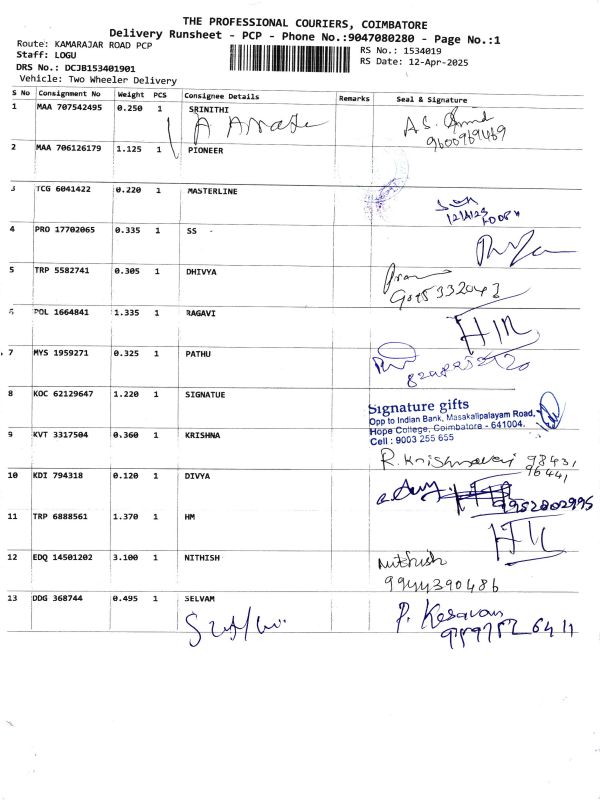 THE PROFESSIONAL COURIERS, COIMBATORE
Delivery Runsheet - PCP - Phone No.:9047080280 - Page No.:1
Route: KAMARAJAR ROAD PCP
Staff: LOGU
DRS No.: DCJB153401901
Vehicle: Two Wheeler Delivery
RS No.: 1534019
RS Date: 12-Apr-2025
S No Consignment No Weight PCS Consignee Details Remarks Seal & Signature
1 MAA 707542495 0.250 1 SRINITHI
9600969469
2 MAA 706126179 1.125 1 PIONEER
3 TCG 6041422 0.220 1 MASTERLINE
4 PRO 17702065 0.335 1 SS
5 TRP 5582741 0.305 1 DHIVYA
6 POL 1664841 1.335 1 RAGAVI
7 MYS 1959271 0.325 1 PATHU
8 KOC 62129647 1.220 1 SIGNATUE
Signature gifts
Opp to Indian Bank, Masakalipalayam Road,
Hope College, Coimbatore - 641004.
Cell : 9003 255 655
9 KVT 3317504 0.360 1 KRISHNA
R. Krishnaveni 98431
96441
10 KDI 794318 0.120 1 DIVYA
9952802995
11 TRP 6888561 1.370 1 HM
12 EDQ 14501202 3.100 1 NITHISH
Nithish
9944390486
13 DDG 368744 0.495 1 SELVAM
P. Kesavan